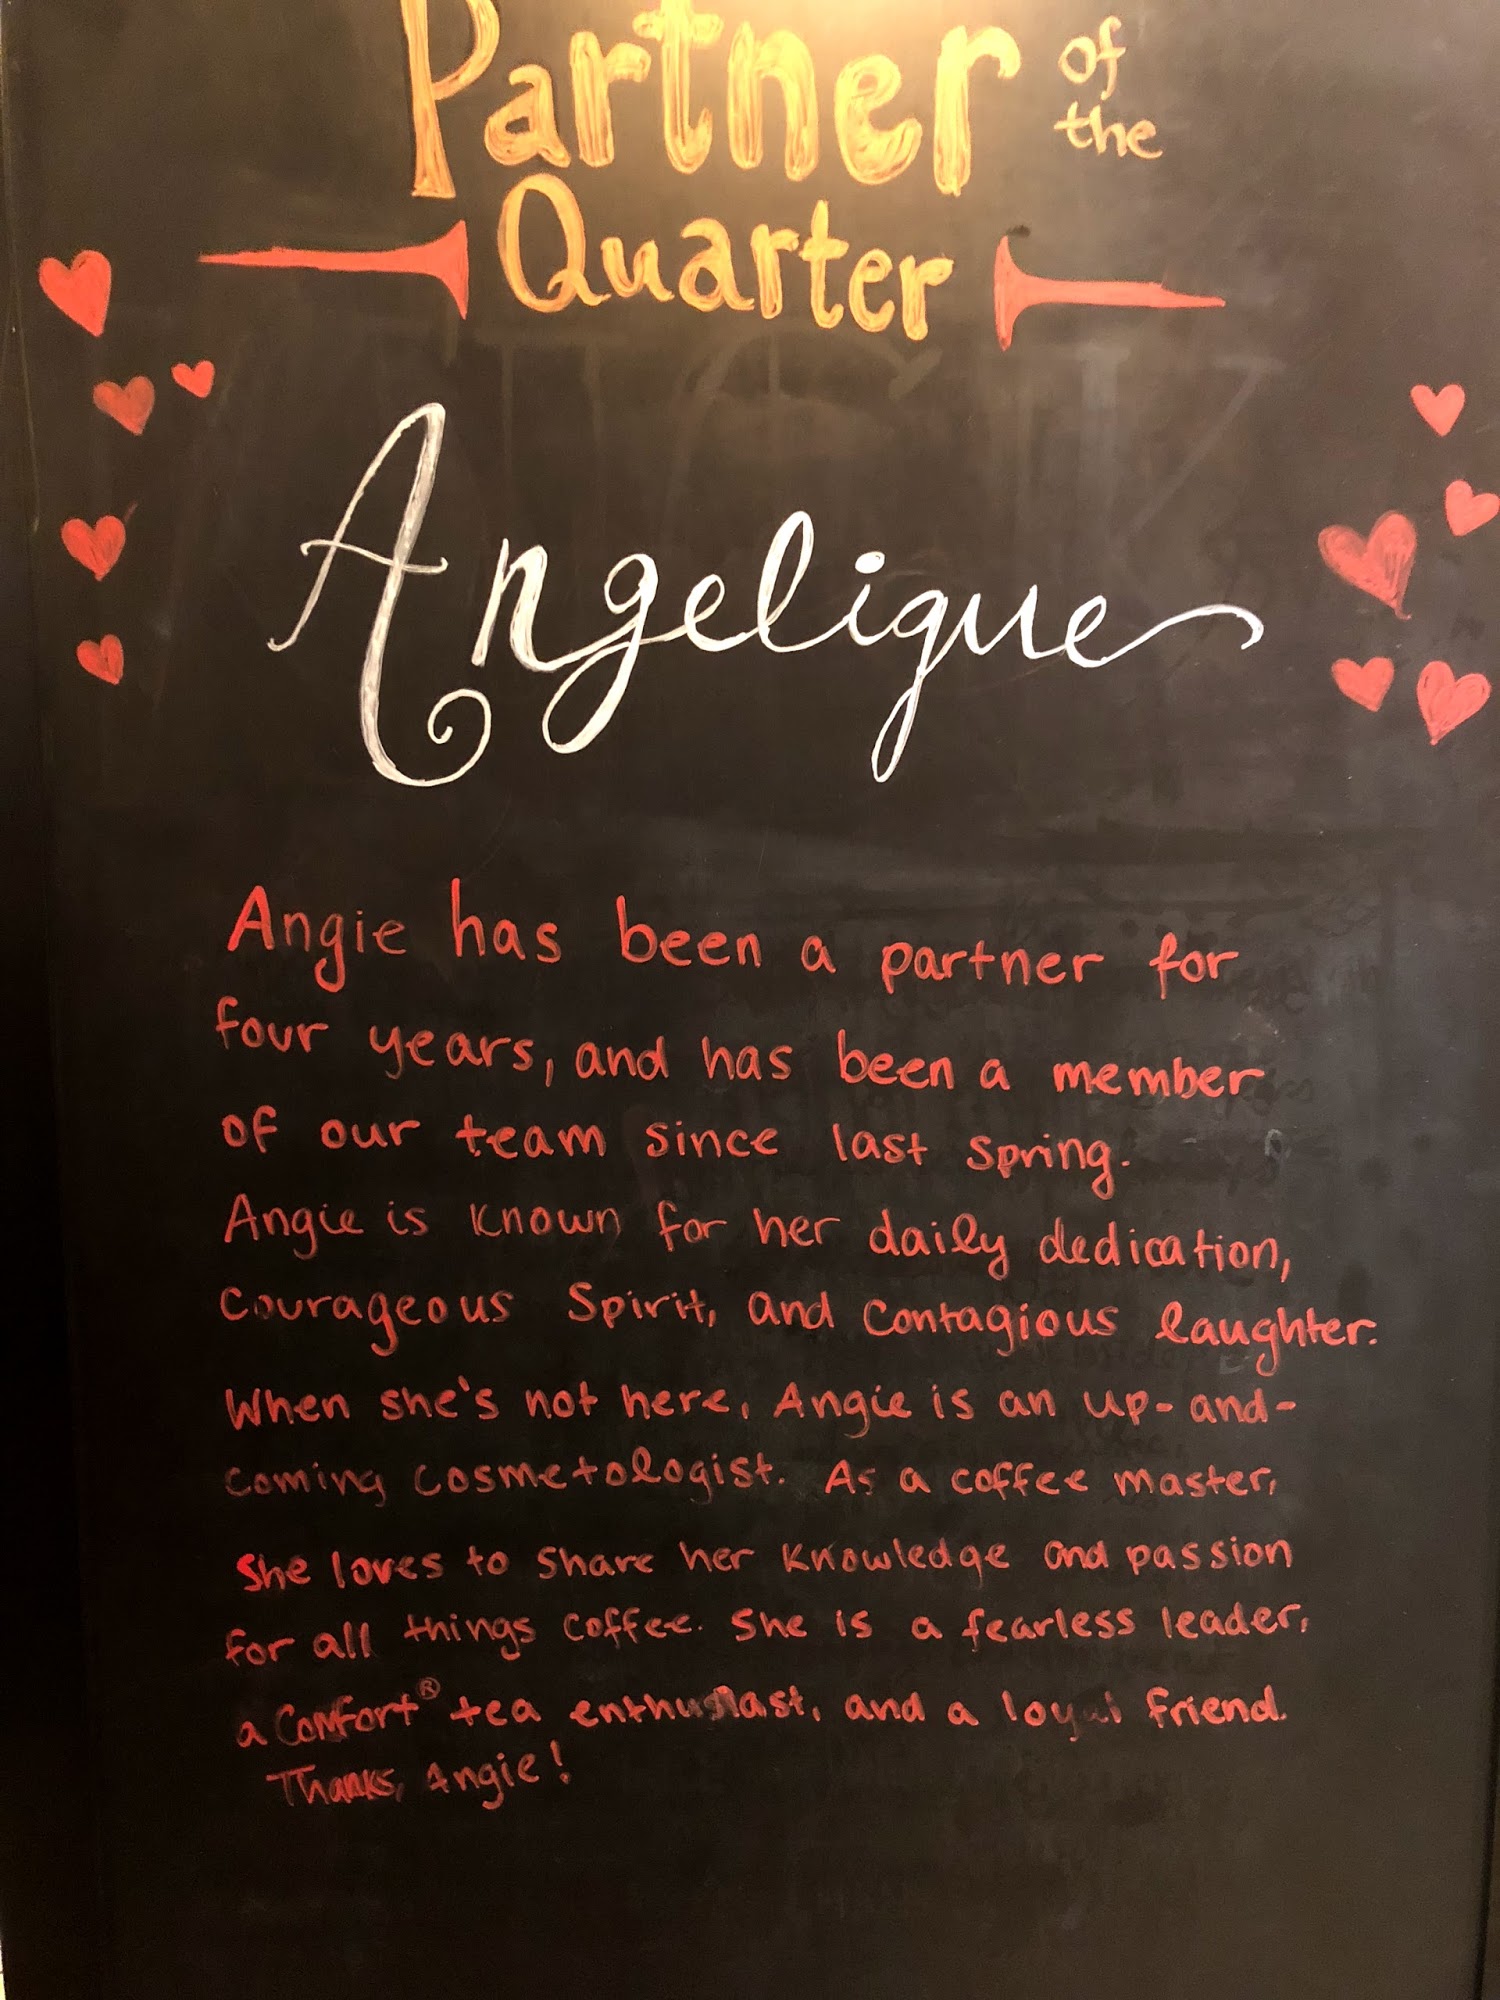 Partner of
the
Quarter
Angelique
Angie has been a partner for
four years, and has been a member
of our team since last spring.
Angie is known for her daily dedication,
courageous spirit, and contagious laughter.
When she's not here, Angie is an up-and-
coming cosmetologist. As a coffee master,
she loves to share her knowledge and passion
for all things coffee. She is a fearless leader,
a Comfort® tea enthusiast, and a loyal friend.
Thanks, Angie!